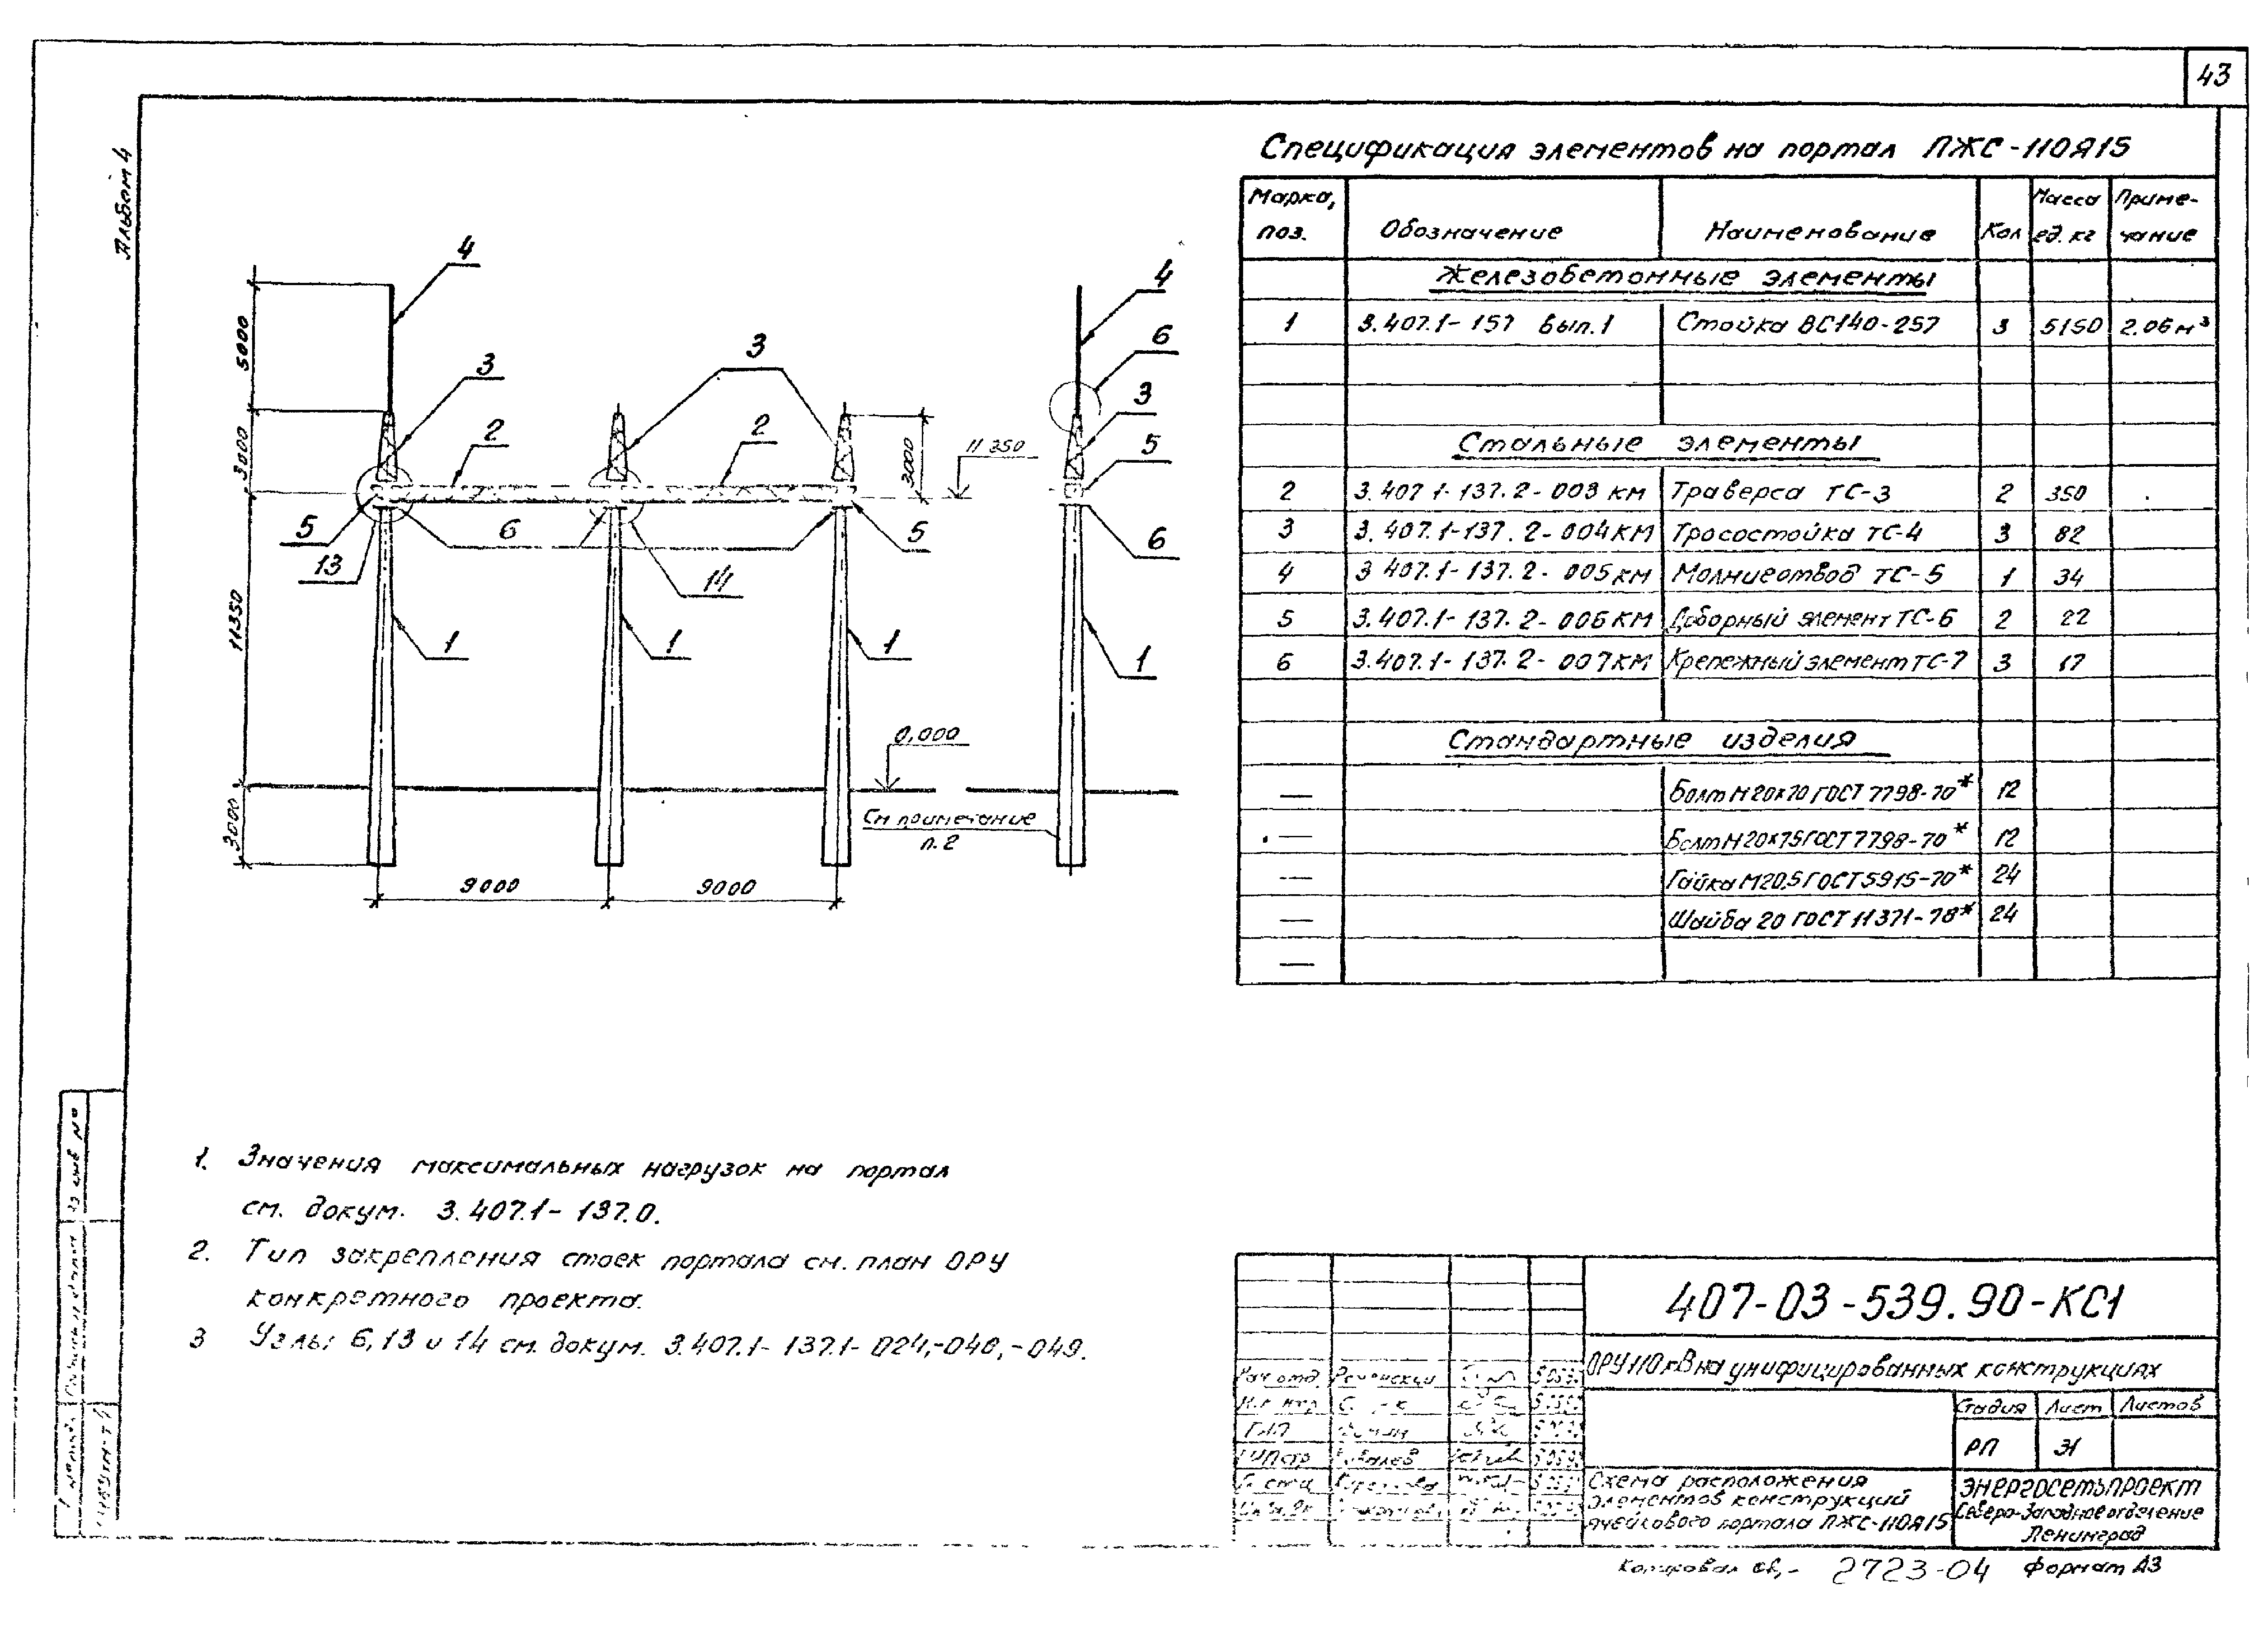 43
Альбом 4
Спецификация элементов на портал ПЖС-110Я15
Марка, поз. Обозначение Наименование Кол Масса ед. кг Примечание
Железобетонные элементы
1 3.407.1-157 вып.1 Стойка ВС140-257 3 5150 2.06 м³
Стальные элементы
2 3.407 1-137.2-003 КМ Траверса ТС-3 2 350
3 3.407.1-137.2-004КМ Тросостойка ТС-4 3 82
4 3 407.1-137.2-005 КМ Молниеотвод ТС-5 1 34
5 3.407.1-137.2-006 КМ Доборный элемент ТС-6 2 22
6 3.407.1-137.2-007КМ Крепежный элемент ТС-7 3 17
Стандартные изделия
— Болт М20х70 ГОСТ 7798-70* 12
— Болт М20х75 ГОСТ 7798-70* 12
— Гайка М20.5 ГОСТ 5915-70* 24
— Шайба 20 ГОСТ 11371-78* 24
—
4
4
5000
3
3
6
3
3000
2
2
3000
11 350
5
5
6
5
6
13
14
11350
1
1
1
1
0,000
3000
См примечание
п.2
9000
9000
1. Значения максимальных нагрузок на портал
см. докум. 3.407.1-137.0.
2. Тип закрепления стоек портала см. план ОРУ
конкретного проекта.
3 Узлы: 6, 13 и 14 см. докум. 3.407.1-137.1-024,-040,-049.
407-03-539.90-КС1
ОРУ 110 кВ на унифицированных конструкциях
Стадия Лист Листов
РП 31
Схема расположения
элементов конструкций
ячейкового портала ПЖС-110Я15
Энергосетьпроект
Северо-Западное отделение
Ленинград
Нач отд
ГИП
Копировал 2723-04 Формат А3